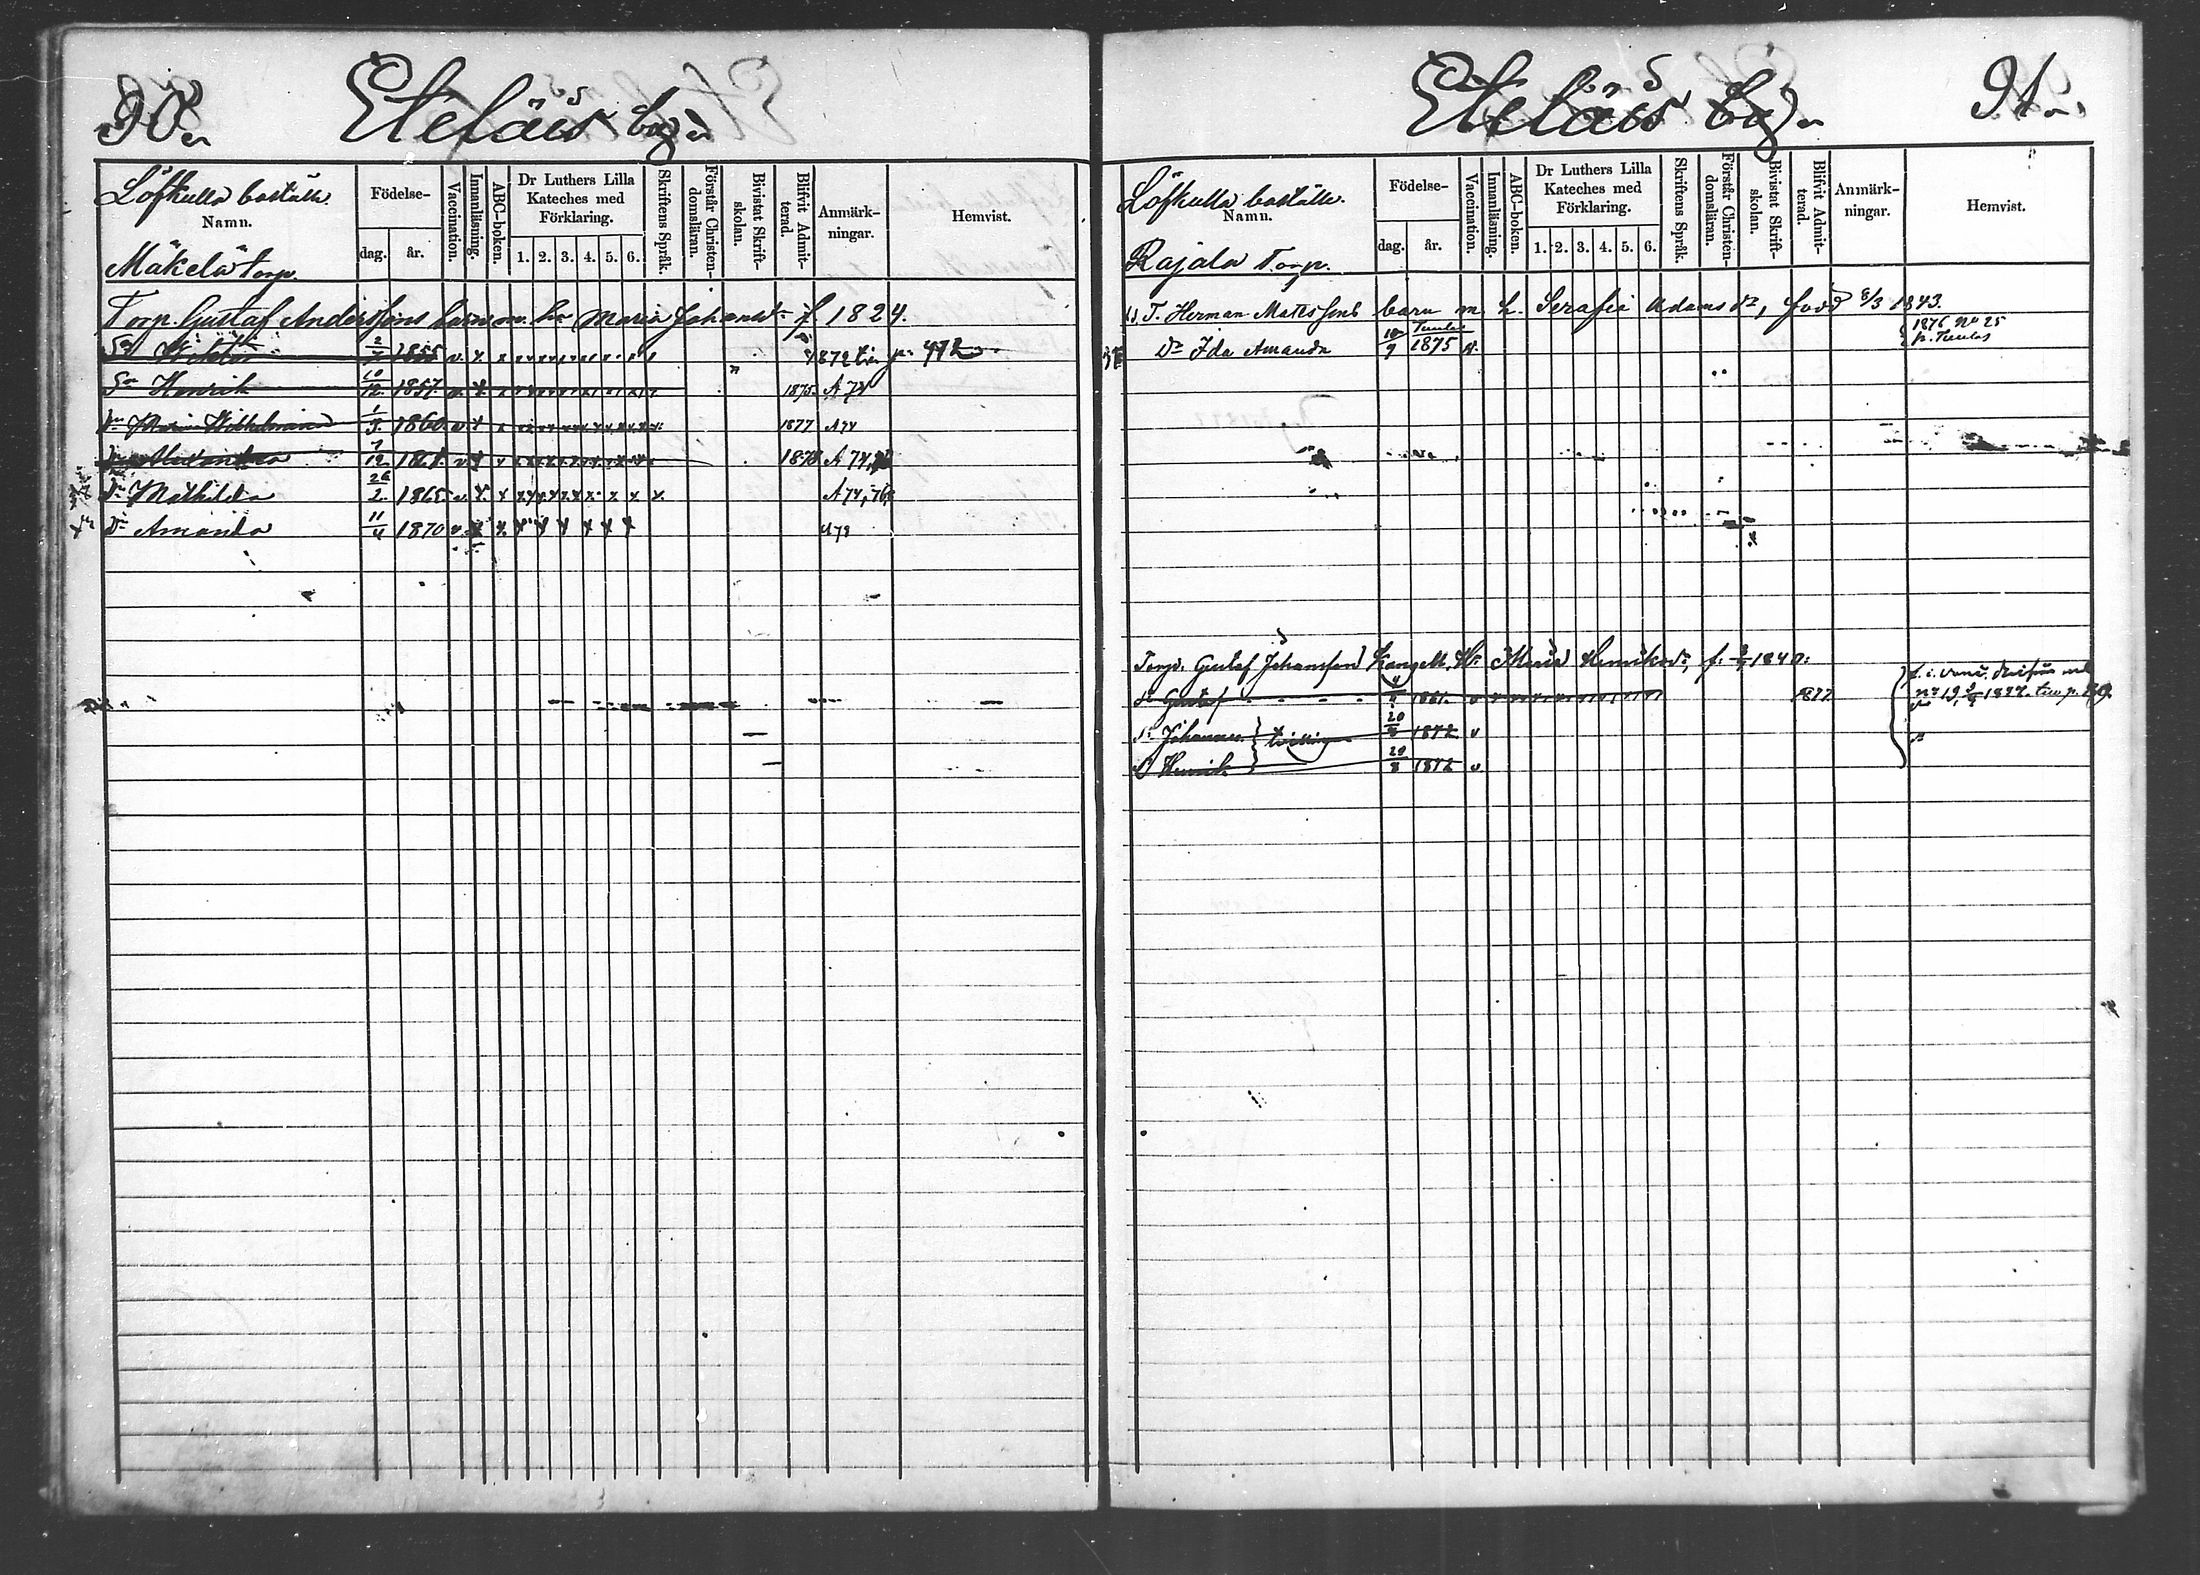 90.
Eteläis by.
Löfkulla boställe.
Namn.
Födelse-
dag.
år.
Vaccination.
Innanläsning.
ABC-boken.
Dr Luthers Lilla
Kateches med
Förklaring.
1. 2. 3. 4. 5. 6.
Skriftens Språk.
Förstår Christen-
domsläran.
Bivistat Skrift-
skolan.
Blifvit Admit-
terad.
Anmärk-
ningar.
Hemvist.
Mäkelä torp.
Torp. Gustaf Anderssons barn m. h. Maria Johansdr f 1824.
Sn Wiktor 2/7 1855 v. x 1872 p. 472
Sn Henrik 10/12 1857 v. x 1875 A 74
Dr Maria Wilhelmina 1/5 1860 v x 1877 A 74
Dr Alexandra 7/12 v x 1878 A 74,
Dr Mathilda 26/2 1865 v x A 74, 76,
Dr Amanda 11/4 1870 v. x
91.
Eteläis by.
Löfkulla boställe.
Namn.
Födelse-
dag.
år.
Vaccination.
Innanläsning.
ABC-boken.
Dr Luthers Lilla
Kateches med
Förklaring.
1. 2. 3. 4. 5. 6.
Skriftens Språk.
Förstår Christen-
domsläran.
Bivistat Skrift-
skolan.
Blifvit Admit-
terad.
Anmärk-
ningar.
Hemvist.
Rajala Torp.
T. Herman Matssons barn m. h. Serafia Adamsdr, född 8/3 1843.
Dr Ida Amanda 10/9 Tuulos 1875 v. 1876 No 25
fr. Tuulos
Torp. Gustaf Johansson Kang m. H. Maria Henriksdr, f. 1840.
Sn Gustaf 1861. v 1877
Sn Johannes 20/8 1872 v
tvillingar
S Henrik 20/8 1872 v